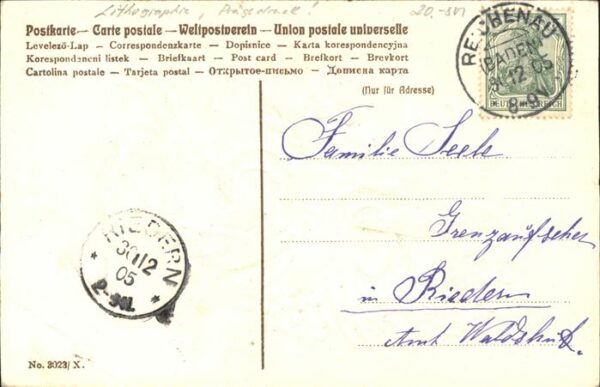 Lithographie, Prägedruck 20,-
Postkarte — Carte postale — Weltpostverein — Union postale universelle
Levelező-Lap — Correspondenzkarte — Dopisnice — Karta korespondencyjna
Korespondencni listek — Briefkaart — Post card — Brefkort — Brevkort
Cartolina postale — Tarjeta postal — Открытое-письмо — Дописна карта
(Nur für Adresse)
REICHENAU
(BADEN)
12 05
8-9V
DEUTSCHES REICH
Familie Seele
Grenzaufseher
in Riedern
Amt Waldshut.
RIEDERN
30 12
05
No. 3023/X.